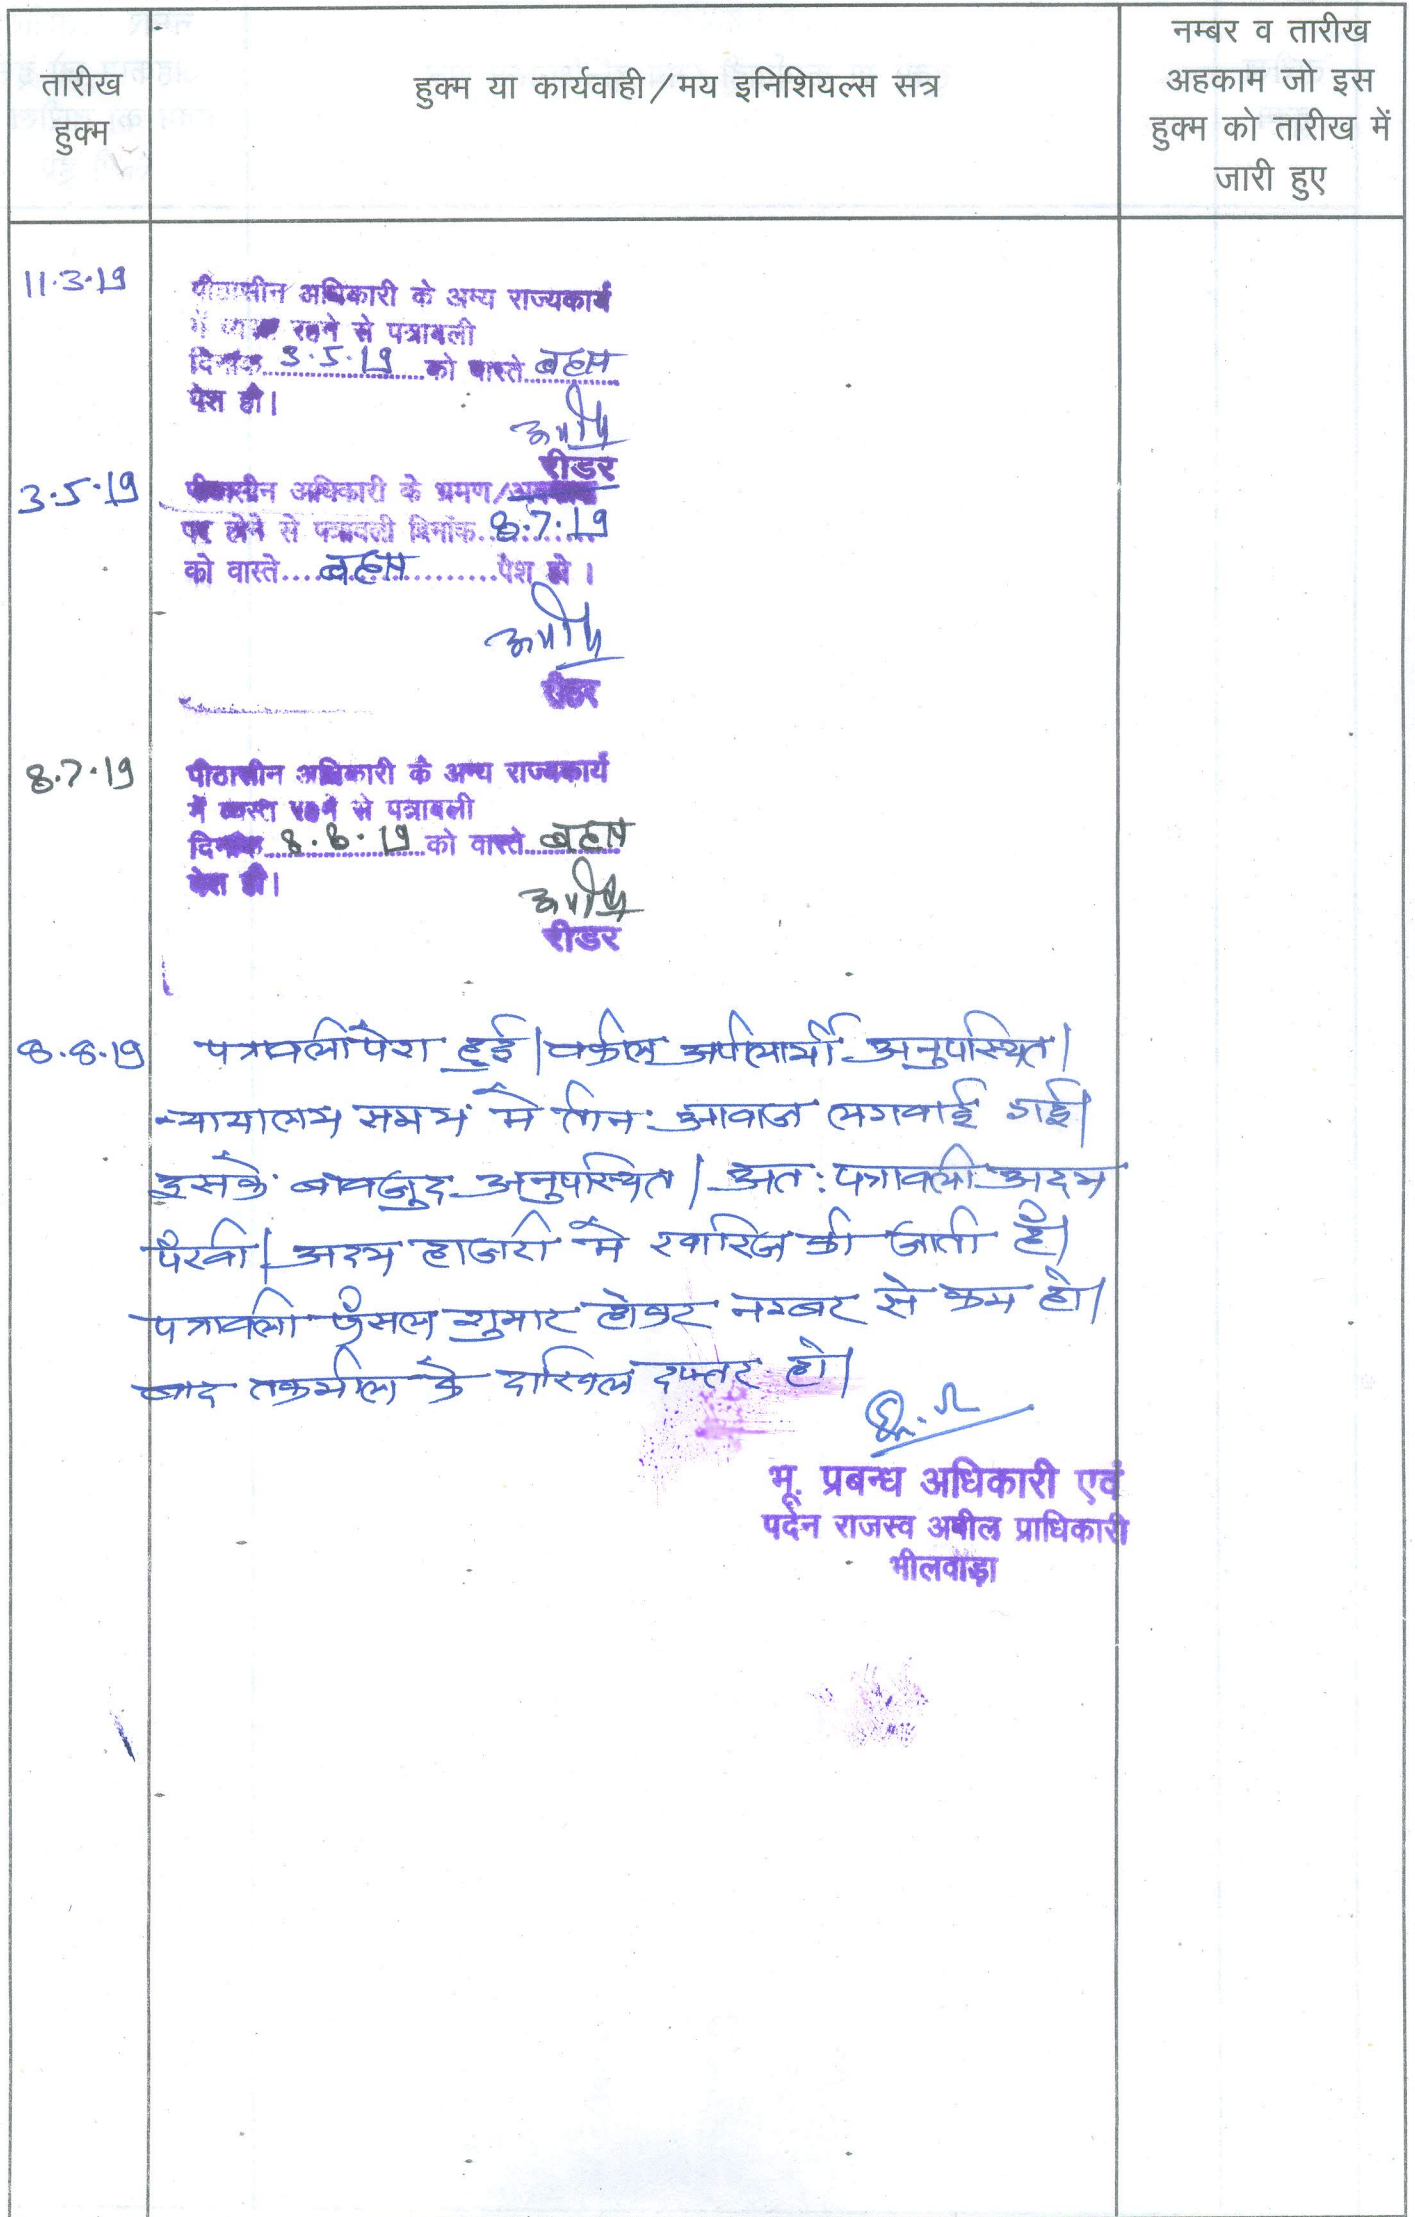 तारीख
हुक्म
हुक्म या कार्यवाही/मय इनिशियल्स सत्र
नम्बर व तारीख
अहकाम जो इस
हुक्म को तारीख में
जारी हुए
11.3.19
पीठासीन अधिकारी के अन्य राज्यकार्य
में व्यस्त रहने से पत्रावली
दिनांक 3.5.19 को वास्ते बहस
पेश हो।
रीडर
3.5.19
पीठासीन अधिकारी के भ्रमण/
पर होने से पत्रावली दिनांक 8.7.19
को वास्ते बहस पेश हो।
रीडर
8.7.19
पीठासीन अधिकारी के अन्य राज्यकार्य
में व्यस्त रहने से पत्रावली
दिनांक 8.8.19 को वास्ते बहस
पेश हो।
रीडर
8.8.19
पत्रावली पेश हुई। वकील अपीलार्थी अनुपस्थित।
न्यायालय समय में तीन आवाज लगवाई गई।
इसके बावजुद अनुपस्थित। अत: पत्रावली अदम
पैरवी/अदम हाजरी में खारिज की जाती है।
पत्रावली फैसल शुमार होकर नम्बर से कम हो।
बाद तकमील के दाखिल दफ्तर हो।
भू. प्रबन्ध अधिकारी एवं
पदेन राजस्व अपील प्राधिकारी
भीलवाड़ा